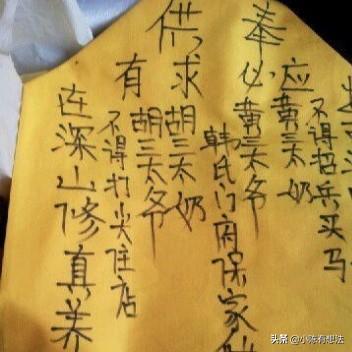 供奉
有求必应
不得招兵买马
黄三太奶
黄三太爷
韩氏门府保家
胡三太奶
胡三太爷
不得打尖住店
在深山修真养
头条 @小陈有想法